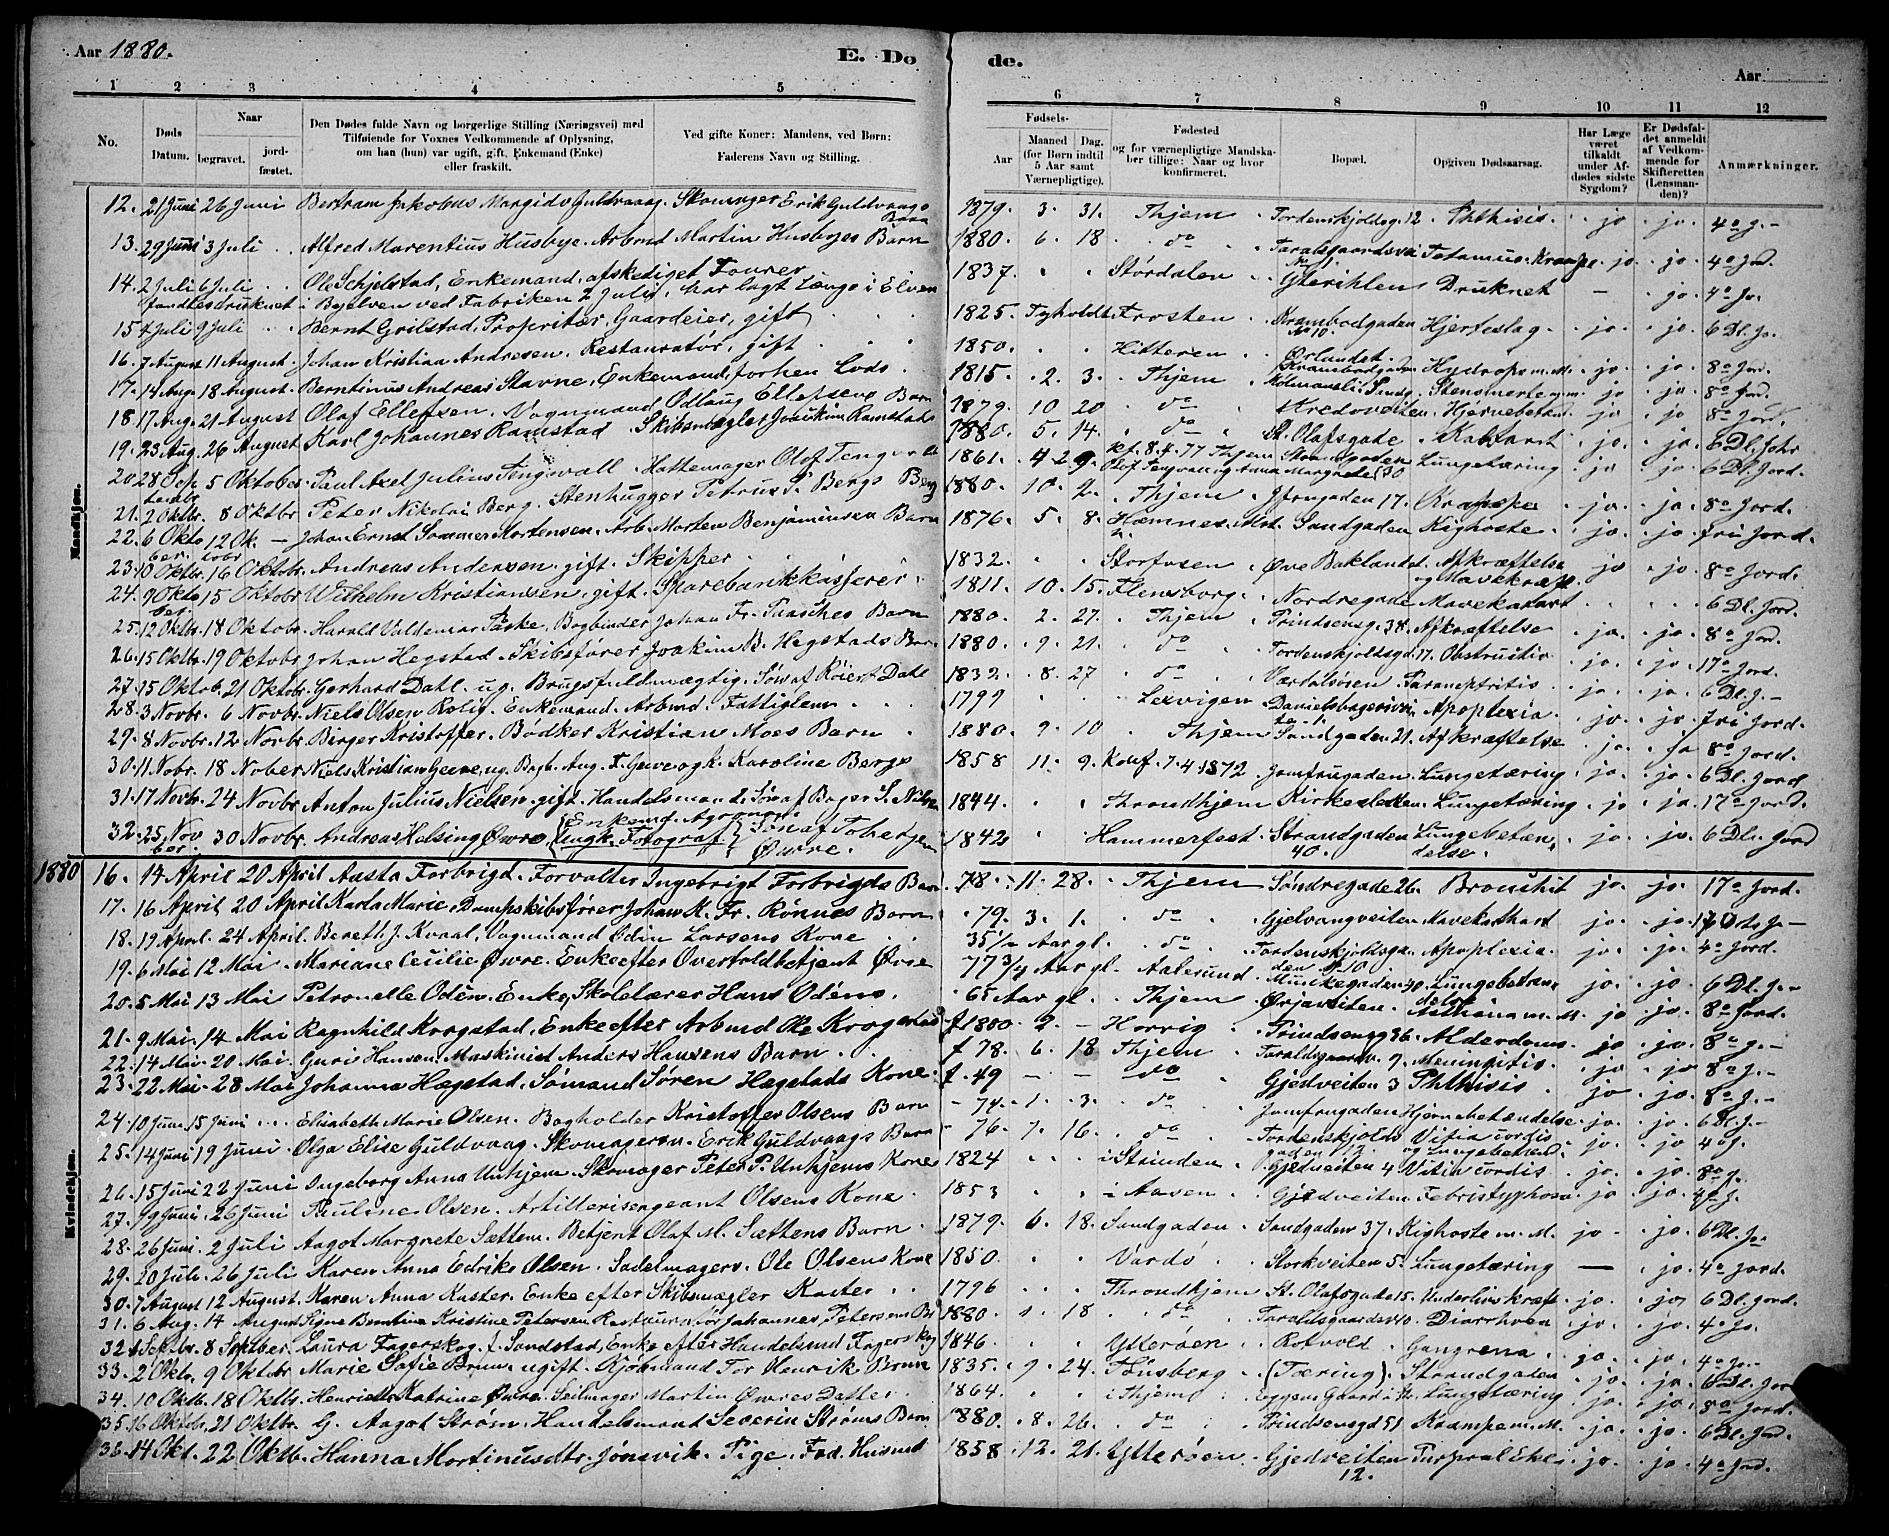 Aar 1880.
E. Do
de.
Aar
1 2 3 4 5
6 7 8 9 10 11 12
No.
Døds Datum.
Naar
begravet.
jordfæstet.
Den Dødes fulde Navn og borgerlige Stilling (Næringsvei) med
Tilføiende for Voxnes Vedkommende af Oplysning,
om han (hun) var ugift, gift, Enkemand (Enke)
eller fraskilt.
Ved gifte Koner: Mandens, ved Børn:
Faderens Navn og Stilling.
Fødsels-
Aar
Maaned (for Børn indtil 5 Aar samt Værnepligtige).
Dag.
Fødested
og for værnepligtige Mandskaber tillige: Naar og hvor
konfirmeret.
Bopæl.
Opgiven Dødsaarsag.
Har Læge været tilkaldt under Afdødes sidste Sygdom?
Er Dødsfaldet anmeldt af Vedkommende for Skifteretten (Lensmanden)?
Anmærkninger.
Mandkjøn.
12. 21 Juni 26 Juni Bertram Jakobus Margido Guldvaag. Skomager Erik Guldvaags Barn 1879. 3. 31. Thjem Tordenskjoldsg. 12 Phthisis jo jo. 4o J.
13. 29 Juni 3 Juli Alfred Marentius Husbye. Arbmd Martin Husbyes Barn 1880. 6. 18 do Taraldsgaardsvei Tetamus. Krampe. jo. jo. 4o Jord.
14. 2 Juli 6 Juli Ole Schjelstad, Enkemand, afskediget Fourer 1837. Størdalen Ytterihlen Druknet — jo. 4o Jo.
fandtes druknet i Bojelven ved Fabriken 2 Juli, har lagt længe i Elven
15. 4 Juli 9 Juli Bernt Grilstad, Propritær, Gaardeier, gift 1825. Tyholdt. Frosten Krambodgaden No 10 Hjerteslag. jo. jo. 6 Dl. Jo.
16. 7 August 11 August. Johan Kristian Andresen. Restauratør, gift 1850. Hitteren Ørlandet. Krambodgaden Hydrops m. M. jo. jo. 8o Jord.
17. 14 Aug. 18 August. Berntinus Andreas Stavne, Enkemand, forhen Lods 1815. 2. 3. Thjem jo jo. 8o Jord.
18. 17 Aug. 21 August Olaf Ellefsen. Vognmand Odlaug Ellefsens Barn 1879. 10 20 do Kredsveiten Hjernebetæn jo jo. 8o Jord.
19. 23 Aug. 26 August Karl Johannes Ramstad. Skibsmægler Joackim Ramstads 1880. 5. 14. do St. Olafsgade Katarrh jo. jo. 6 Dl. Johr
20. 28 September 5 Oktober Paul Axel Julius Tengvall. Hattemager Olof Tengvall 1861. 4 29. kf. 8. 4. 77 Thjem Strandgaden 30 Lungetæring jo jo. 6 Dl. Jord.
21. 2 Oktbr. 8 Oktbr Peter Nikolai Berg. Stenhugger Petrus P. Bergs Barn 1880. 10. 2. Thjem Ilengaden 17. Krampe jo. jo. 8o Jord.
22. 6 Oktober. 12 Oktobr. — Johan Ernst Sommer Mortensen. Arb. Morten Benjaminsen Barn 1876. 5. 8. Hæmnes Sandgaden Kighoste. jo. jo. fri Jord.
23. 10 Oktbr. 16 Oktobr. Andreas Andersen. gift. Skipper. 1832. Storfosen Øvre Baklandet. Afkræftelse og Mavekræft. jo jo. 8o Jord.
24. 9 Oktober 15 Oktobr Wilhelm Kristiansen, gift. Sparebankkasserer. 1811. 10. 15. Flensborg. Nordregade Mavekatart 6 Dl. Jord.
25. 12 Oktbr. 18 Oktobr. Harald Valdemar Paske, Bogbinder Johan Fr. Paasches Barn 1880. 2. 27. Thjem Prindsensg. 38. Afkræftelse jo. jo. 8o Jord.
26. 15 Oktbr. 19 Oktobr Johan Hegstad. Skibsfører Joakim B. Hegstads Barn 1880. 9. 21. do Tordenskjoldsgd 17. Obstructio jo. jo. 17o Jord.
27. 15 Oktob. 21 Oktobr. Gerhard Dahl. ug. Brugsfuldmægtig. Søn af Røiert Dahl 1832. 8. 27 do Værdalsøren Paranefritis jo. jo. 6 Dl. J.—
28. 3 Novbr. 6 Novbr. Niels Olsen Rolig. Enkemand. Arbmd. Fattiglem 1799 Lexvigen Danielsbageriveien Apoplexia. jo. jo fri Jord.
29. 8 Novbr. 12 Novbr Birger Kristoffer. Bødker Kristian Moes Barn 1880. 9. 10 Thjem Sandgaden 21. Afkræftelse jo. ja 8o Jord.
30. 11 Nobr. 18 Nober Niels Kristian Geeve, ug. Bagb. Aug. F. Geeve og k. Karoline Bergs 1858 11. 9. Konf. 7. 4. 1872 Jomfrugaden Lungetæring jo. jo. 6 Dl. Jord
31. 17 Novbr. 24 Novbr. Anton Julius Nielsen. gift. Handelsmand. Søn af Bager S. Nilsen 1844. Throndhjem Kirkesletten Lungetæring jo jo. 17o Jord.
32. 25 November. 30 Novbr. Andreas Helsing Øwre { Enkemd. Agronom. Ungk. Fotograf } Søn af Toherjen Øwre. 1842 Hammerfest Strandgaden 40. Lungebetændelse. jo. jo. 6 Dl. Jord
Kvindekjøn.
1880 16. 14 April 20 April Aasta Forbrigd. Forvalter Ingebrigt Forbrigds Barn 78. 11 28. Thjem Søndregade 26. Bronshit jo. jo. 17o Jord.
17. 16 April 20 April Karla Marie. Dampskibsfører Johan K. Fr. Rønnes Barn 79. 3. 1. do Gjelvangveiten Mavekathart jo. jo. 17 Orts J—
18. 19 April. 24 April. Bereth J. Kvaal, Vognmand Odin Larsens Kone 35 1/2 Aar gl. do Tordenskjoldsgaden 10. Apoplexia. jo. jo. 4o Jord.
19. 6 Mai 12 Mai. Mariane Cecilie Øwre. Enke efter Overtoldbetjent Øvre 77 3/4 Aar gl. Aalesund Munkegaden 40 Lungebetændelse jo. jo. 6 Dl. J.—
20. 5 Mai. 13 Mai Petronelle Odén. Enke, Skolelærer Hans Odéns. 65 Aar gl. Thjem Ørjaveiten Asthma m. M. jo jo. 8o Jord.
21. 9 Mai. 14 Mai Ragnhild Krogstad, Enke efter Arbmd Ole Krogstad f 1800. 2. — Horrig Prindsensg 36. Alderdoms. jo. jo. 8o J.—
22. 14 Mai. 20 Mai. Guris Hansen. Maskinist Anders Hansens Barn f 78. 6. 18 Thjem Taraldsgaardsv. 9. Meningitis. jo jo 8o J.—
23. 22 Mai. 28 Mai Johanna Hægstad, Sømand Søren Hægstads Kone f. 49 — — do Gjedveiten 3 Phthisis jo jo. 8o J.—
24. 10 Juni. 15 Juni Elisabeth Marie Olsen. Bogholder Kristoffer Olsens Barn 74. 1. 3. do Jomfrugaden Hjernebetændelse jo. jo. 6 Dl. J.—
25. 14 Juni 19 Juni. Olga Elise Guldvaag. Skomagersv. Erik Guldvaags Barn 76. 7. 16. do Tordenskjoldsgaden 12. Vitia cordis og Lungebetænd. jo. jo. 4o J.
26. 15 Juni 22 Juni Ingeborg Anna Unhjem. Skomager Peter P. Unhjems Kone 1824 i Strinden Gjedveiten 4 Vitia cordis jo. jo. 8o J.
27. 19 Juni. 26 Juni Pauline Olsen. Artillerisergeant Olsens Kone 1853 i Aasen Gjedveiten Febris typhosa jo jo. 4o J.
28. 26 Juni. 2 Juli Aagot Margrete Sættem. Betjent Olaf M. Sættens Barn 1879. 6. 18. Sandgaden Sandgaden 37. Kighoste m. M. jo. jo. 6 Dl. Jo
29. 20 Juli. 26 Juli Karen Anna Edrike Olsen. Sadelmagers. Ole Olsens Kone 1850. Vardø Storkveiten 5. Lungetæring — jo. 4o Jord.
30. 7 August 12 August. Karen Anna Kaster. Enke efter Skibsmægler Kaster 1796 Throndhjem St. Olafsgade 15. Underlivskræft jo. jo. 6 Dl. Jord.
31. 6 Aug. 14 August Signe Berntine Kristine Petersen Restauratør Johannes Petersens Br 1880. 1. 18 do Taraldsgaardsv 40. Diarrhoea jo. jo. 4o Jo.
32. 4 Septbr. 8 September. Laura Fagerskog f. Sundstad, Enke efter Handelsmd Fagerskog 1846. Ytterøen Rotvold Gangrena. jo. jo. 4o Jo.
33. 2 Oktbr. 9 Oktobr Marie Sofie Bruun. ugift. Kjøbmand Tor Henrik Bruun 1835. 9 24. Tønsberg (Tæring) Strandgaden jo. jo. 6 Dl. Jor
34. 10 Oktb. 18 Oktb. Henriette Katrine Øwre. Seilmager Martin Øwres Datter 1864. i Thjem Lungetæring jo. jo. 8o Jord.
35. 16 Oktob. 21 Oktbr. G. Aagot Strøm. Handelsmand Severin Strøms Barn 1880. 8. 26. do Prindsensgd 51 Krampe m. M. jo. jo. 6 Dl. Jord.
36. 14 Okt. 22 Oktb. Hanna Martinusdtr. Jønsvik. Pige. Fad. Husmd 1858. 12. 21. Ytterøen. Gjedveiten 12. jo. jo. 4o Jord.